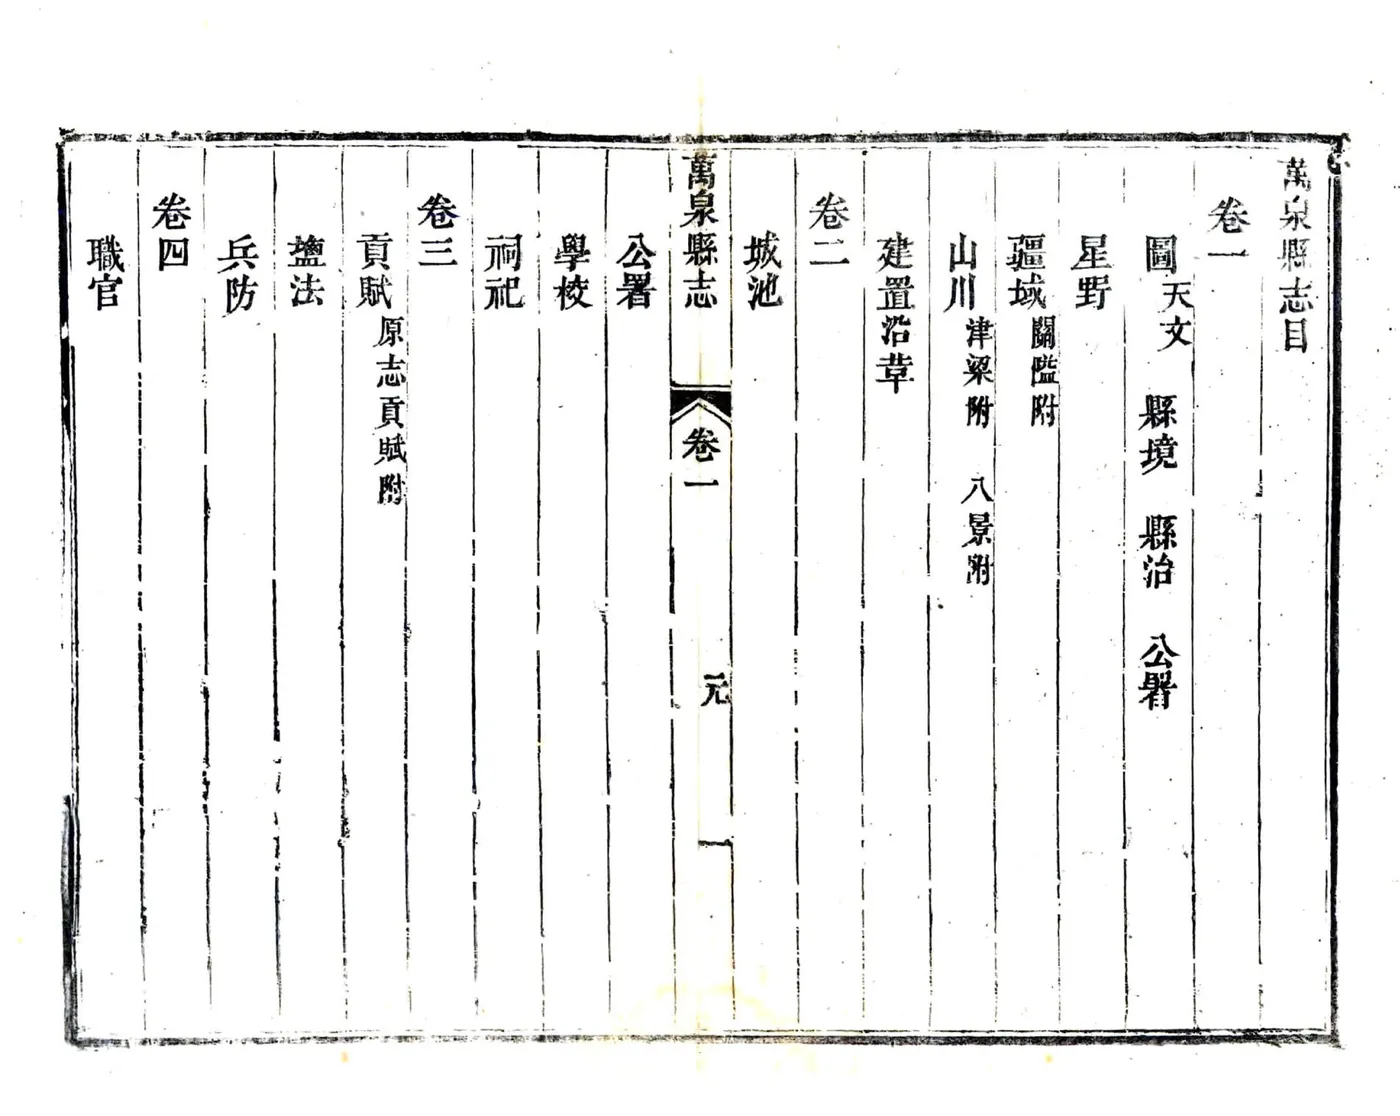 萬泉縣志目
卷一
圖 天文 縣境 縣治 公署
星野
疆域 關隘附
山川 津梁附 八景附
建置沿革
卷二
城池
萬泉縣志 卷一 元 一
公署
學校
祠祀
卷三
貢賦 原志貢賦附
鹽法
兵防
卷四
職官